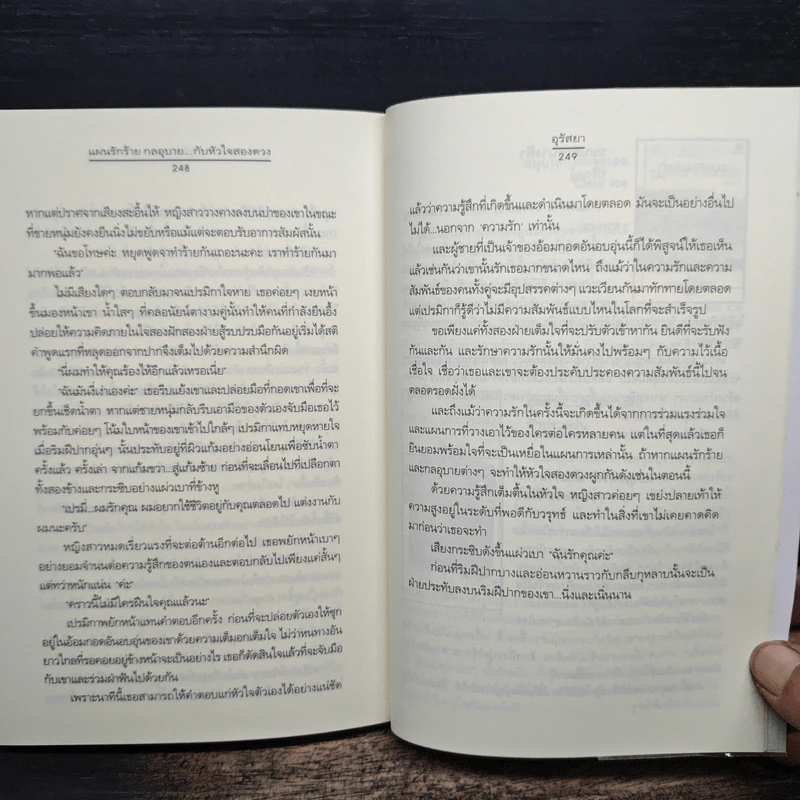 แผนรักร้าย กลอุบาย...กับหัวใจสองดวง
248
หากแต่ปราศจากเสียงสะอื้นไห้ หญิงสาววางคางลงบนบ่าของเขาในขณะ
ที่ชายหนุ่มยังคงยืนนิ่งไม่ขยับหรือแม้แต่จะตอบรับอาการสัมผัสนั้น
“ฉันขอโทษค่ะ หยุดพูดจาทำร้ายกันเถอะนะคะ เราทำร้ายกันมา
มากพอแล้ว”
ไม่มีเสียงใดๆ ตอบกลับมาจนเปรมิกาใจหาย เธอค่อยๆ เงยหน้า
ขึ้นมองหน้าเขา น้ำใสๆ ที่คลอนัยน์ตางามคู่นั้นทำให้คนที่กำลังยืนอึ้ง
ปล่อยให้ความคิดภายในใจสองฝักสองฝ่ายสู้รบปรบมือกันอยู่เริ่มได้สติ
คำพูดแรกที่หลุดออกจากปากจึงเต็มไปด้วยความสำนึกผิด
“นี่ผมทำให้คุณร้องไห้อีกแล้วเหรอเนี่ย”
“ฉันมันงี่เง่าเองค่ะ” เธอรีบแย้งเขาและปล่อยมือที่กอดเขาเพื่อที่จะ
ยกขึ้นเช็ดน้ำตา หากแต่ชายหนุ่มกลับรีบเอามือของตัวเองจับมือเธอไว้
พร้อมกับค่อยๆ โน้มใบหน้าของเขาเข้าไปใกล้ๆ เปรมิกาแทบหยุดหายใจ
เมื่อริมฝีปากอุ่นๆ นั้นประทับอยู่ที่ผิวแก้มอย่างอ่อนโยนเพื่อซับน้ำตา
ครั้งแล้ว ครั้งเล่า จากแก้มขวา...สู่แก้มซ้าย ก่อนที่จะเลื่อนไปที่เปลือกตา
ทั้งสองข้างและกระซิบอย่างแผ่วเบาที่ข้างหู
“เปรมี่...ผมรักคุณ ผมอยากใช้ชีวิตอยู่กับคุณตลอดไป แต่งงานกับ
ผมนะครับ”
หญิงสาวหมดเรี่ยวแรงที่จะต่อต้านอีกต่อไป เธอพยักหน้าเบาๆ
อย่างยอมจำนนต่อความรู้สึกของตนเองและตอบกลับไปเพียงแค่สั้นๆ
แต่ทว่าหนักแน่น “ค่ะ”
“คราวนี้ไม่มีใครฝืนใจคุณแล้วนะ”
เปรมิกาพยักหน้าแทนคำตอบอีกครั้ง ก่อนที่จะปล่อยตัวเองให้ซุก
อยู่ในอ้อมกอดอันอบอุ่นของเขาด้วยความเต็มอกเต็มใจ ไม่ว่าหนทางอัน
ยาวไกลที่รอคอยอยู่ข้างหน้าจะเป็นอย่างไร เธอก็ตัดสินใจแล้วที่จะจับมือ
กับเขาและร่วมฝ่าฟันไปด้วยกัน
เพราะนาทีนี้เธอสามารถให้คำตอบแก่หัวใจตัวเองได้อย่างแน่ชัด
อุรัสยา
249
แล้วว่าความรู้สึกที่เกิดขึ้นและดำเนินมาโดยตลอด มันจะเป็นอย่างอื่นไป
ไม่ได้...นอกจาก ‘ความรัก’ เท่านั้น
และผู้ชายที่เป็นเจ้าของอ้อมกอดอันอบอุ่นนี้ก็ได้พิสูจน์ให้เธอเห็น
แล้วเช่นกันว่าเขานั้นรักเธอมากขนาดไหน ถึงแม้ว่าในความรักและความ
สัมพันธ์ของคนทั้งคู่จะมีอุปสรรคต่างๆ แวะเวียนกันมาทักทายโดยตลอด
แต่เปรมิกาก็รู้ดีว่าไม่มีความสัมพันธ์แบบไหนในโลกที่จะสำเร็จรูป
ขอเพียงแค่ทั้งสองฝ่ายเต็มใจที่จะปรับตัวเข้าหากัน ยินดีที่จะรับฟัง
กันและกัน และรักษาความรักนั้นให้มั่นคงไปพร้อมๆ กับความไว้เนื้อ
เชื่อใจ เชื่อว่าเธอและเขาจะต้องประคับประคองความสัมพันธ์นี้ไปจน
ตลอดรอดฝั่งได้
และถึงแม้ว่าความรักในครั้งนี้จะเกิดขึ้นได้จากการร่วมแรงร่วมใจ
และแผนการที่วางเอาไว้ของใครต่อใครหลายคน แต่ในที่สุดแล้วเธอก็
ยินยอมพร้อมใจที่จะเป็นเหยื่อในแผนการเหล่านั้น ถ้าหากแผนรักร้าย
และกลอุบายต่างๆ จะทำให้หัวใจสองดวงผูกกันดังเช่นในตอนนี้
ด้วยความรู้สึกเต็มตื้นในหัวใจ หญิงสาวค่อยๆ เขย่งปลายเท้าให้
ความสูงอยู่ในระดับที่พอดีกับวรุทธ์ และทำในสิ่งที่เขาไม่เคยคาดคิด
มาก่อนว่าเธอจะทำ
เสียงกระซิบดังขึ้นแผ่วเบา “ฉันรักคุณค่ะ”
ก่อนที่ริมฝีปากบางและอ่อนหวานราวกับกลีบกุหลาบนั้นจะเป็น
ฝ่ายประทับลงบนริมฝีปากของเขา...นิ่งและเนิ่นนาน